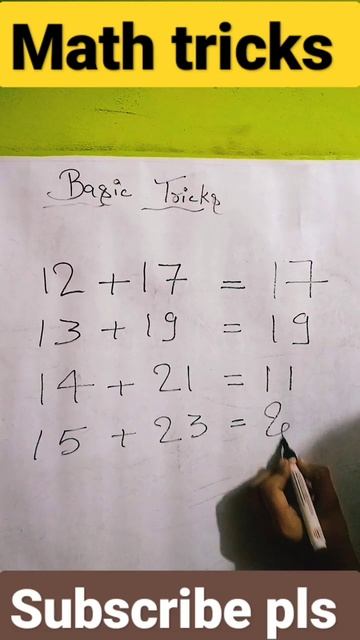 Math tricks
Basic Tricks
12 + 17 = 17
13 + 19 = 19
14 + 21 = 11
15 + 23 =
Subscribe pls